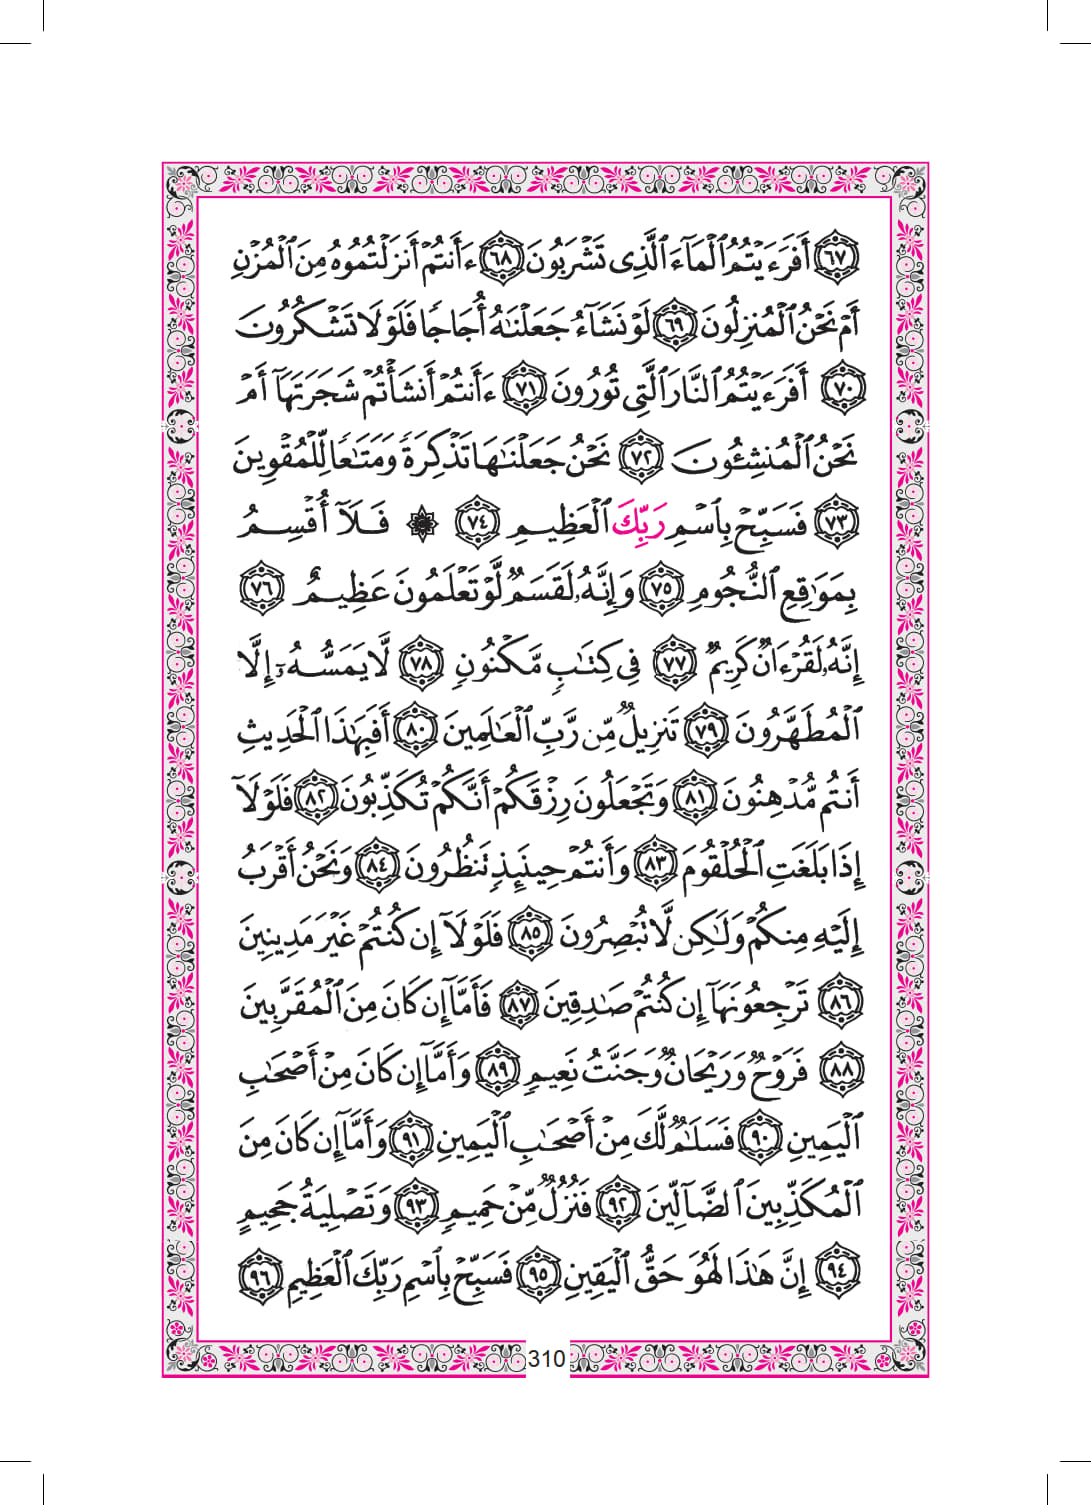 ﴿٦٧﴾ أَفَرَءَيْتُمُ ٱلْمَآءَ ٱلَّذِى تَشْرَبُونَ ﴿٦٨﴾ ءَأَنتُمْ أَنزَلْتُمُوهُ مِنَ ٱلْمُزْنِ
أَمْ نَحْنُ ٱلْمُنزِلُونَ ﴿٦٩﴾ لَوْ نَشَآءُ جَعَلْنَٰهُ أُجَاجًا فَلَوْلَا تَشْكُرُونَ
﴿٧٠﴾ أَفَرَءَيْتُمُ ٱلنَّارَ ٱلَّتِى تُورُونَ ﴿٧١﴾ ءَأَنتُمْ أَنشَأْتُمْ شَجَرَتَهَآ أَمْ
نَحْنُ ٱلْمُنشِـُٔونَ ﴿٧٢﴾ نَحْنُ جَعَلْنَٰهَا تَذْكِرَةً وَمَتَٰعًا لِّلْمُقْوِينَ
﴿٧٣﴾ فَسَبِّحْ بِٱسْمِ رَبِّكَ ٱلْعَظِيمِ ﴿٧٤﴾ ۞ فَلَآ أُقْسِمُ
بِمَوَٰقِعِ ٱلنُّجُومِ ﴿٧٥﴾ وَإِنَّهُۥ لَقَسَمٌ لَّوْ تَعْلَمُونَ عَظِيمٌ ﴿٧٦﴾
إِنَّهُۥ لَقُرْءَانٌ كَرِيمٌ ﴿٧٧﴾ فِى كِتَٰبٍ مَّكْنُونٍ ﴿٧٨﴾ لَّا يَمَسُّهُۥٓ إِلَّا
ٱلْمُطَهَّرُونَ ﴿٧٩﴾ تَنزِيلٌ مِّن رَّبِّ ٱلْعَٰلَمِينَ ﴿٨٠﴾ أَفَبِهَٰذَا ٱلْحَدِيثِ
أَنتُم مُّدْهِنُونَ ﴿٨١﴾ وَتَجْعَلُونَ رِزْقَكُمْ أَنَّكُمْ تُكَذِّبُونَ ﴿٨٢﴾ فَلَوْلَآ
إِذَا بَلَغَتِ ٱلْحُلْقُومَ ﴿٨٣﴾ وَأَنتُمْ حِينَئِذٍ تَنظُرُونَ ﴿٨٤﴾ وَنَحْنُ أَقْرَبُ
إِلَيْهِ مِنكُمْ وَلَٰكِن لَّا تُبْصِرُونَ ﴿٨٥﴾ فَلَوْلَآ إِن كُنتُمْ غَيْرَ مَدِينِينَ
﴿٨٦﴾ تَرْجِعُونَهَآ إِن كُنتُمْ صَٰدِقِينَ ﴿٨٧﴾ فَأَمَّآ إِن كَانَ مِنَ ٱلْمُقَرَّبِينَ
﴿٨٨﴾ فَرَوْحٌ وَرَيْحَانٌ وَجَنَّتُ نَعِيمٍ ﴿٨٩﴾ وَأَمَّآ إِن كَانَ مِنْ أَصْحَٰبِ
ٱلْيَمِينِ ﴿٩٠﴾ فَسَلَٰمٌ لَّكَ مِنْ أَصْحَٰبِ ٱلْيَمِينِ ﴿٩١﴾ وَأَمَّآ إِن كَانَ مِنَ
ٱلْمُكَذِّبِينَ ٱلضَّآلِّينَ ﴿٩٢﴾ فَنُزُلٌ مِّنْ حَمِيمٍ ﴿٩٣﴾ وَتَصْلِيَةُ جَحِيمٍ
﴿٩٤﴾ إِنَّ هَٰذَا لَهُوَ حَقُّ ٱلْيَقِينِ ﴿٩٥﴾ فَسَبِّحْ بِٱسْمِ رَبِّكَ ٱلْعَظِيمِ ﴿٩٦﴾
310